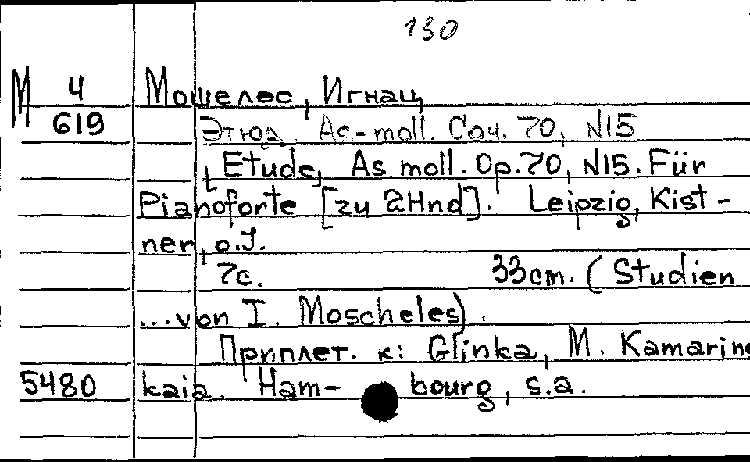 130
М 4 Мошелес, Игнац
619 Этюд. As-moll. Соч. 70, N15
[Etude, As moll. Op.70, N15. Für
Pianoforte [zu 2Hnd]. Leipzig, Kist-
ner, o.J.
7с. 33cm. (Studien
...von I. Moscheles).
Приплет. к: Glinka, M. Kamarins
5480 kaia. Ham- bourg, s.a.